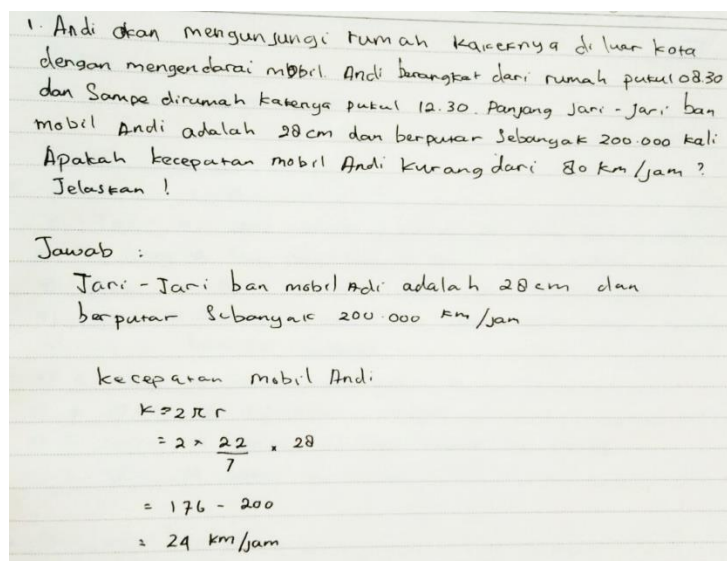 1. Andi akan mengunjungi rumah kakeknya di luar kota
dengan mengendarai mobil. Andi berangkat dari rumah pukul 08.30
dan Sampe dirumah kakenya pukul 12.30. Panjang Jari-jari ban
mobil Andi adalah 28 cm dan berputar Sebanyak 200.000 kali
Apakah kecepatan mobil Andi kurang dari 80 km/jam ?
Jelaskan !
Jawab :
Jari-Jari ban mobil Adi adalah 28 cm dan
berputar Sebanyak 200.000 km/jam
kecepatan mobil Andi
K = 2 π r
= 2 × 22/7 × 28
= 176 - 200
= 24 km/jam